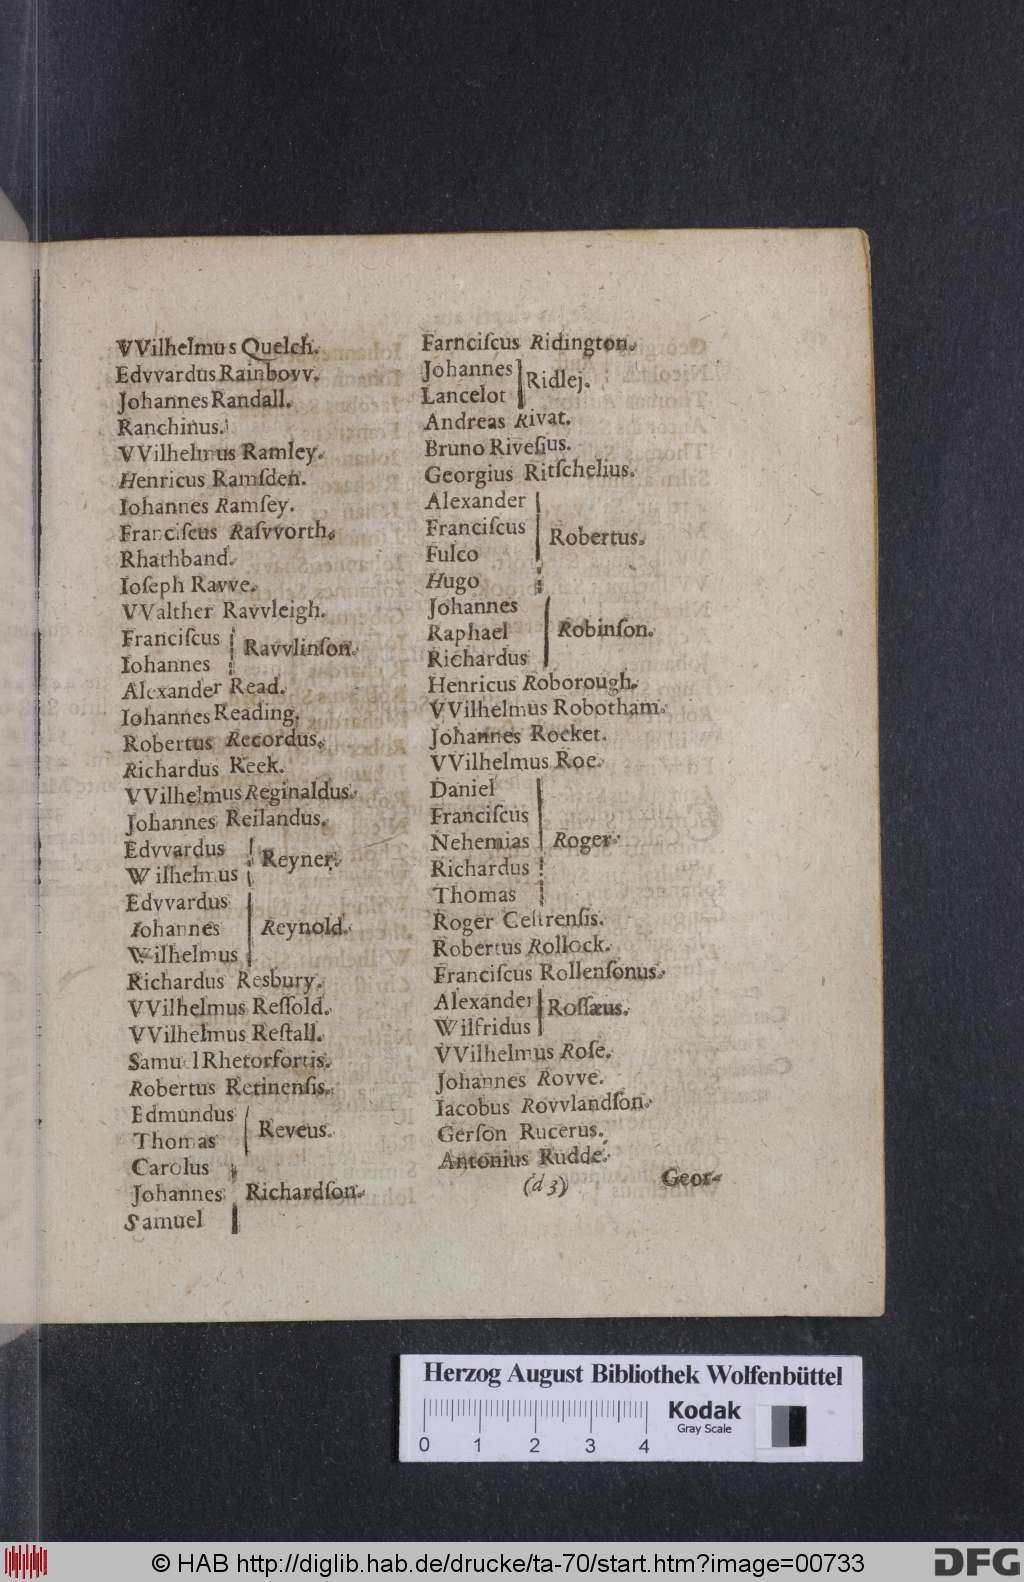 VVilhelmus Quelch.
Edvvardus Rainbovv.
Johannes Randall.
Ranchinus.
VVilhelmus Ramley.
Henricus Ramsden.
Iohannes Ramſey.
Franciſcus Raſvvorth.
Rhathband.
Ioſeph Ravve.
VValther Ravvleigh.
Franciſcus
Ravvlinſon.
Iohannes
Alexander Read.
Iohannes Reading.
Robertus Recordus.
Richardus Reek.
VVilhelmus Reginaldus.
Johannes Reilandus.
Edvvardus
Reyner.
Wilhelmus
Edvvardus
Iohannes Reynold.
Wilhelmus
Richardus Resbury.
VVilhelmus Reſſold.
VVilhelmus Reſtall.
Samuel Rhetorfortis.
Robertus Retinenſis.
Edmundus
Reveus.
Thomas
Carolus
Johannes Richardſon.
Samuel
Farnciſcus Ridington.
Johannes
Ridlej.
Lancelot
Andreas Rivat.
Bruno Riveſius.
Georgius Ritſchelius.
Alexander
Franciſcus
Robertus.
Fulco
Hugo
Johannes
Raphael Robinſon.
Richardus
Henricus Roborough.
VVilhelmus Robotham.
Johannes Rocket.
VVilhelmus Roe.
Daniel
Franciſcus
Nehemias Roger.
Richardus
Thomas
Roger Ceſtrenſis.
Robertus Rollock.
Franciſcus Rollenſonus.
Alexander
Roſſæus.
Wilfridus
VVilhelmus Roſe.
Johannes Rovve.
Iacobus Rovvlandſon.
Gerſon Rucerus.
Antonius Rudde.
(d 3)
Geor-
Herzog August Bibliothek Wolfenbüttel
0 1 2 3 4
Kodak
Gray Scale
© HAB http://diglib.hab.de/drucke/ta-70/start.htm?image=00733
DFG